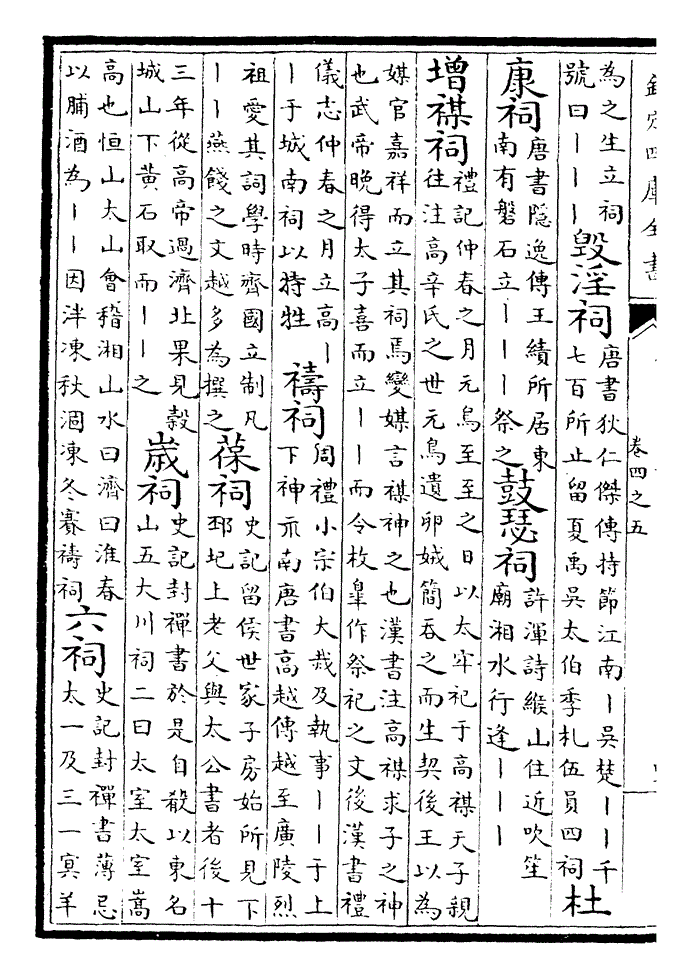 欽定四庫全書
卷四之五
為之生立祠
號曰丨丨丨
毁淫祠
唐書狄仁傑傳持節江南丨吳楚丨丨千
七百所止留夏禹吳太伯季札伍員四祠
杜
康祠
唐書隱逸傳王績所居東
南有磐石立丨丨丨祭之
鼓瑟祠
許渾詩緱山住近吹笙
廟湘水行逢丨丨丨
增禖祠
禮記仲春之月元鳥至至之日以太牢祀于高禖天子親
往注高辛氏之世元鳥遺卵娀簡吞之而生契後王以為
媒官嘉祥而立其祠焉變媒言禖神之也漢書注高禖求子之神
也武帝晚得太子喜而立丨丨而令枚臯作祭祀之文後漢書禮
儀志仲春之月立高丨
丨于城南祠以特牲
禱祠
周禮小宗伯大烖及執事丨丨于上
下神示南唐書高越傳越至廣陵烈
祖愛其詞學時齊國立制凡
丨丨燕餞之文越多為撰之
葆祠
史記留侯世家子房始所見下
邳圯上老父與太公書者後十
三年從高帝過濟北果見穀
城山下黄石取而丨丨之
歲祠
史記封禪書於是自殽以東名
山五大川祠二曰太室太室嵩
高也恒山太山會稽湘山水曰濟曰淮春
以脯酒為丨丨因泮凍秋涸凍冬賽禱祠
六祠
史記封禪書薄忌
太一及三一冥羊